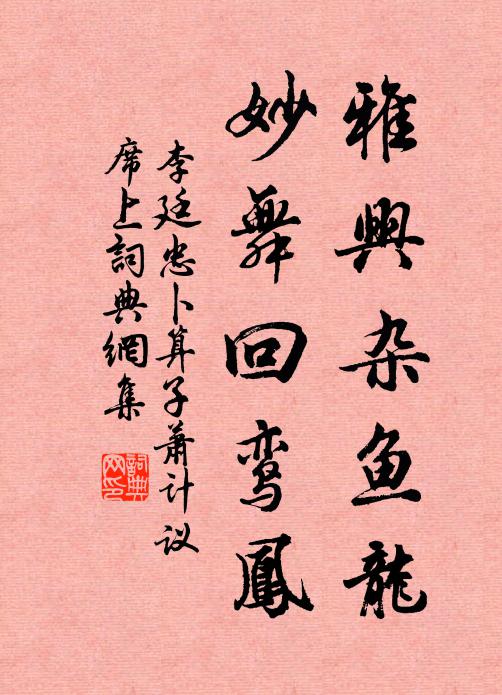 雅興杂鱼龍
妙舞回鸾鳳
李廷忠卜算子萧计议
席上詞典網集
詞典网印